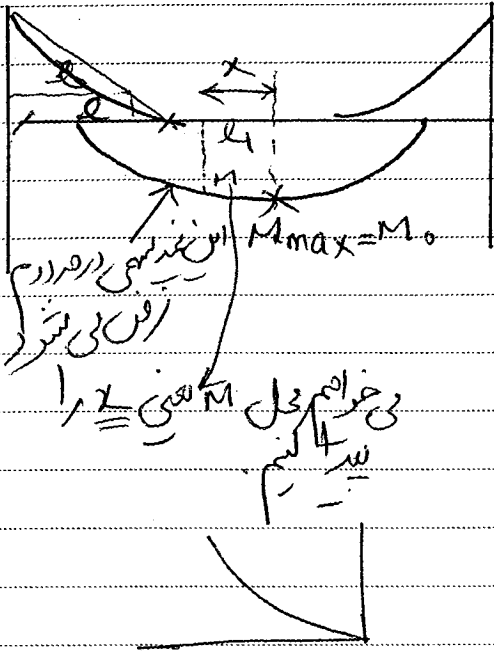 x
l
l
l₁
M
Mmax = M₀
این در درجه دوم
فرض می شود
می خواهیم محل M یعنی x را
پیدا کنیم